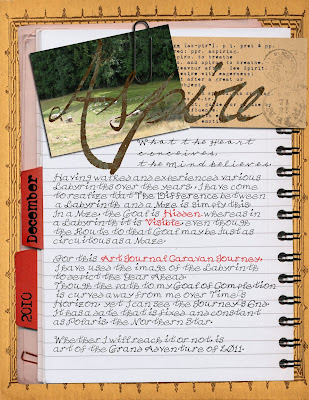 Aspire
What the Heart
conceives,
the mind believes
December
2010
Having walked and experienced various
Labyrinths over the years, I have come
to realize that The Difference between
a Labyrinth and a Maze is simply this.
In a Maze, the Goal is Hidden whereas in
a Labyrinth it is Visible even though
the Route to that Goal may be Just as
circuitous as a Maze.
For this Art Journal Caravan Journey,
I have used the image of the Labyrinth
to depict the Year Ahead.
Though the path to my Goal of Completion
is curved away from me over Time's
Horizon, yet I can see the Journey's End.
It has a date that is fixed and constant
as Polaris, the Northern Star.
Whether I will reach it or not is
art of the Grand Adventure of 2011.